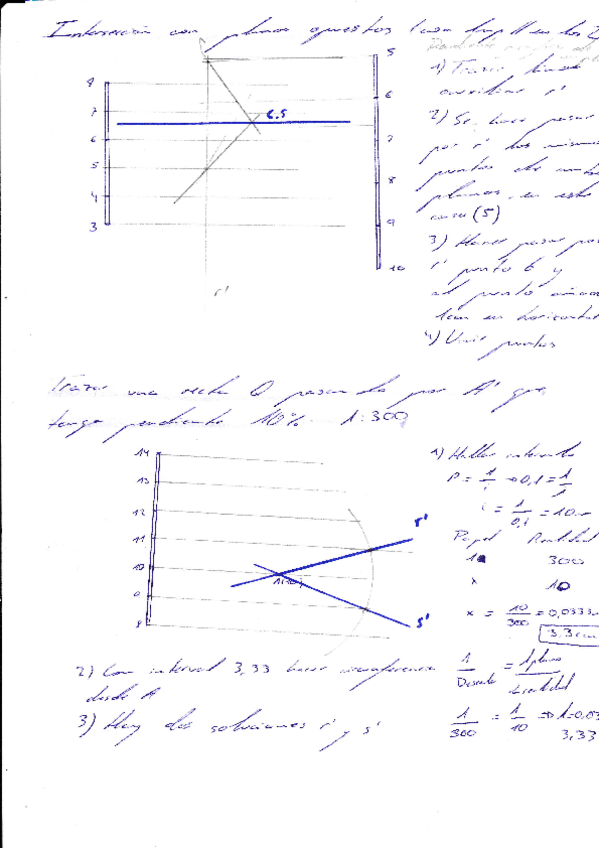 Intersección con planos opuestos (con trap // en los 2
1) Trazar
auxiliar r'
2) Se hace pasar
por r' los mismos
puntos de ambos
planos, en este
caso (5)
3) Hacer pasar por
r' punto 6 y
el punto
horizontal
4) Unir puntos
8
7
6
5
4
3
6.5
5
6
7
8
9
10
r'
Trazar una recta Q pasando por A' que
tenga pendiente 10% 1:300
14
13
12
11
10
9
8
r'
s'
1) Hallar intervalo
P = 1/i → 0,1 = 1/
i = 1/0,1 = 10
Papel Realidad
1 300
x 10
x = 10/300 = 0,0333
3,3 cm
2) Con interval 3,33 hacer circunferencia
desde A
3) Hay dos soluciones r' y s'
1/Descale = 1 plano/1 realidad
1/300 = 1/10 ⇒ 1=0,03
3,33